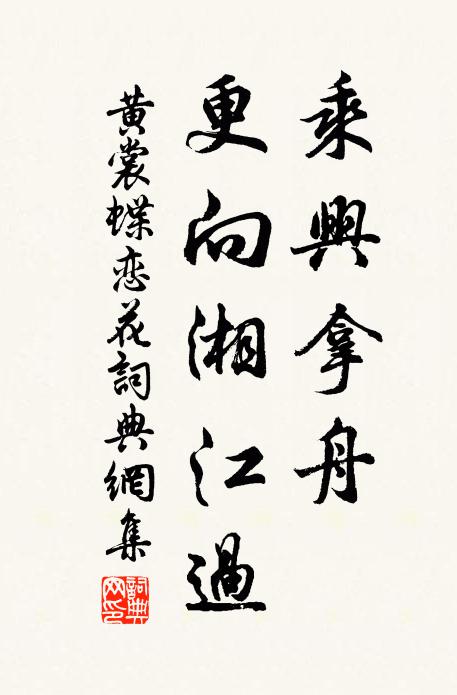 乘興拿舟
更向湘江過
黃裳蝶戀花詞典網集
詞典网印